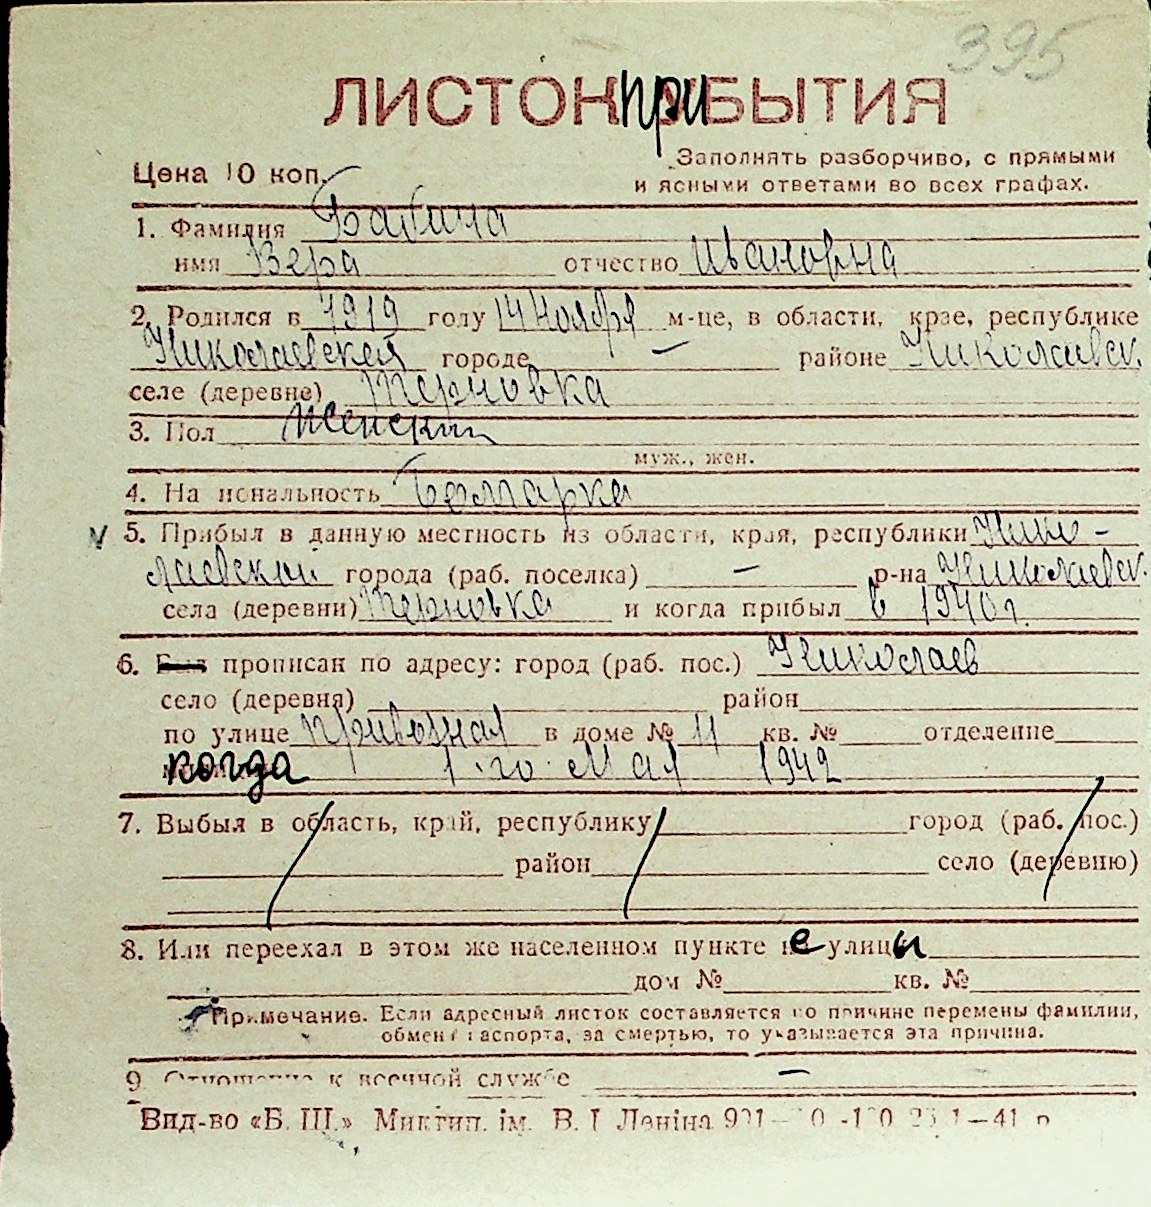 395
ЛИСТОК ПРИБЫТИЯ
Цена 10 коп.
Заполнять разборчиво, с прямыми
и ясными ответами во всех графах.
1. Фамилия
имя Вера отчество Ивановна
2. Родился в 1919 году 14 Ноября м-це, в области, крае, республике
Николаевской городе — районе Николаевск.
селе (деревне) Терновка
3. Пол Женский
муж., жен.
4. Национальность Болгарка
V 5. Прибыл в данную местность из области, края, республики Нико-
лаевский города (раб. поселка) — р-на Николаевск.
села (деревни) Терновка и когда прибыл в 1940 г.
6. Был прописан по адресу: город (раб. пос.) Николаев
село (деревня) район
по улице Привозная в доме № 11 кв. № отделение
когда 1-го Мая 1942
7. Выбыл в область, край, республику город (раб. пос.)
район село (деревню)
8. Или переехал в этом же населенном пункте не улицы
дом № кв. №
Примечание. Если адресный листок составляется по причине перемены фамилии,
обмена паспорта, за смертью, то указывается эта причина.
9 Отношение к военной службе —
Вид-во «Б. Ш.» Миктип. ім. В. І Леніна